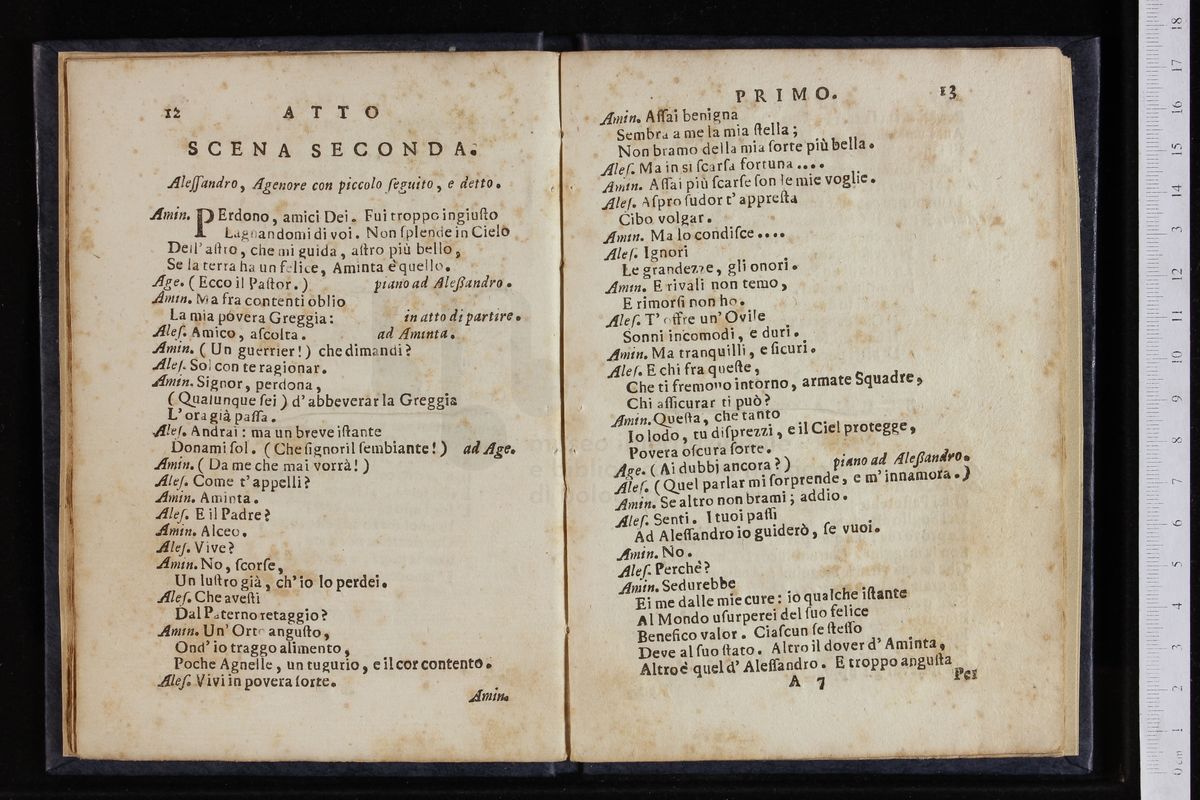 12 ATTO
SCENA SECONDA.
Aleſſandro, Agenore con piccolo ſeguito, e detto.
Amin. PErdono, amici Dei. Fui troppo ingiuſto
Lagnandomi di voi. Non ſplende in Cielo
Dell' aſtro, che mi guida, aſtro più bello,
Se la terra ha un felice, Aminta è quello.
Age. (Ecco il Paſtor.) piano ad Aleßandro.
Amin. Ma fra contenti oblio
La mia povera Greggia: in atto di partire.
Aleſ. Amico, aſcolta. ad Aminta.
Amin. (Un guerrier!) che dimandi?
Aleſ. Sol con te ragionar.
Amin. Signor, perdona,
(Qualunque ſei) d' abbeverar la Greggia
L' ora già paſſa.
Aleſ. Andrai: ma un breve iſtante
Donami ſol. (Che ſignoril ſembiante!) ad Age.
Amin. (Da me che mai vorrà!)
Aleſ. Come t' appelli?
Amin. Aminta.
Aleſ. E il Padre?
Amin. Alceo.
Aleſ. Vive?
Amin. No, ſcorſe,
Un luſtro già, ch' io lo perdei.
Aleſ. Che aveſti
Dal Paterno retaggio?
Amin. Un' Orto anguſto,
Ond' io traggo alimento,
Poche Agnelle, un tugurio, e il cor contento.
Aleſ. Vivi in povera ſorte.
Amin.
PRIMO. 13
Amin. Aſſai benigna
Sembra a me la mia ſtella;
Non bramo della mia ſorte più bella.
Aleſ. Ma in sì ſcarſa fortuna....
Amin. Aſſai più ſcarſe ſon le mie voglie.
Aleſ. Aſpro ſudor t' appreſta
Cibo volgar.
Amin. Ma lo condiſce....
Aleſ. Ignori
Le grandezze, gli onori.
Amin. E rivali non temo,
E rimorſi non ho.
Aleſ. T' offre un' Ovile
Sonni incomodi, e duri.
Amin. Ma tranquilli, e ſicuri.
Aleſ. E chi fra queſte,
Che ti fremono intorno, armate Squadre,
Chi aſſicurar ti può?
Amin. Queſta, che tanto
Io lodo, tu diſprezzi, e il Ciel protegge,
Povera oſcura ſorte.
Age. (Ai dubbj ancora?) piano ad Aleßandro.
Aleſ. (Quel parlar mi ſorprende, e m' innamora.)
Amin. Se altro non brami; addio.
Aleſ. Senti. I tuoi paſſi
Ad Aleſſandro io guiderò, ſe vuoi.
Amin. No.
Aleſ. Perchè?
Amin. Sedurebbe
Ei me dalle mie cure: io qualche iſtante
Al Mondo uſurperei del ſuo felice
Benefico valor. Ciaſcun ſe ſteſſo
Deve al ſuo ſtato. Altro il dover d' Aminta,
Altro è quel d' Aleſſandro. E troppo anguſta
A 7 Per